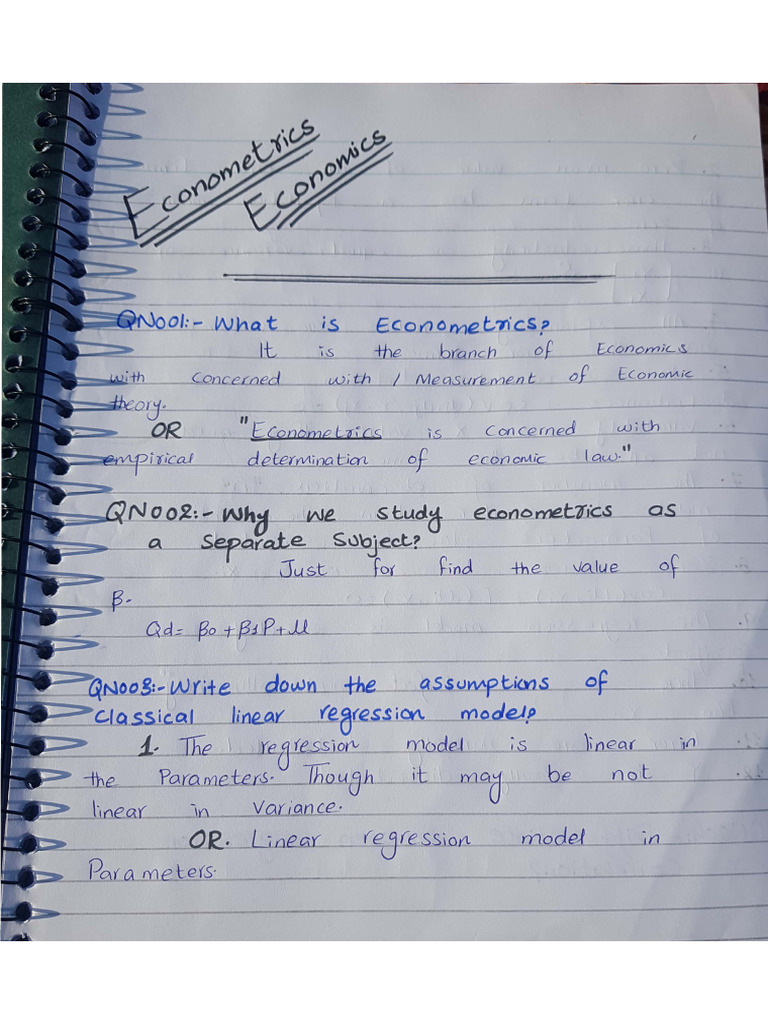 Econometrics
Economics
QNo01:- What is Econometrics?
It is the branch of Economics
with concerned with / Measurement of Economic
theory.
OR "Econometrics is concerned with
empirical determination of economic law."
QNo02:- Why we study econometrics as
a separate subject?
Just for find the value of
β.
Qd = β0 + β1P + μ
QNo03:- Write down the assumptions of
classical linear regression model?
1. The regression model is linear in
the Parameters. Though it may be not
linear in variance.
OR. Linear regression model in
Parameters.